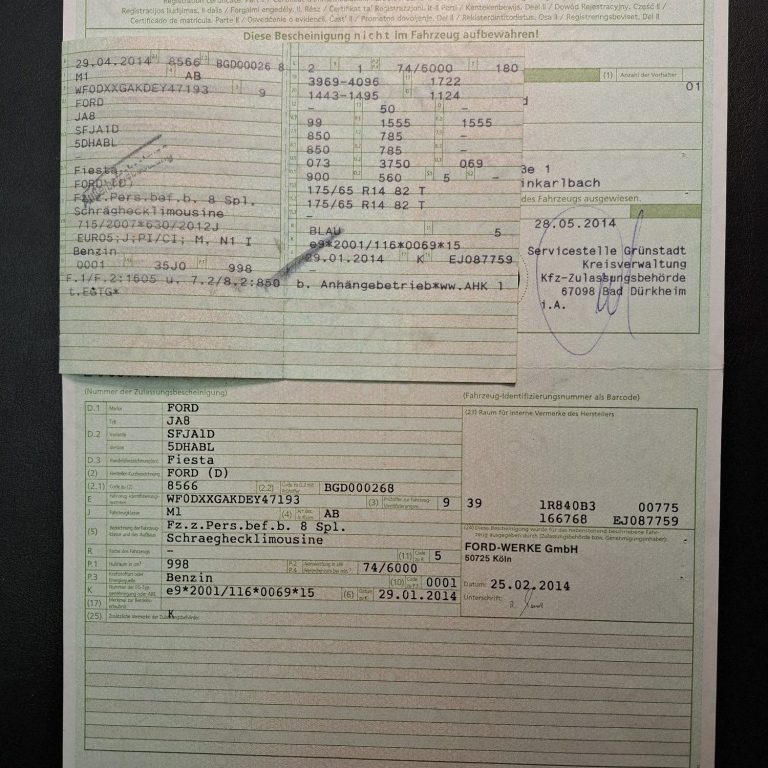 Registracijos liudijimas, II dalis / Forgalmi engedély, II. Rész / Ċertifikat ta' Reġistrazzjoni, It-II Parti / Kentekenbewijs, Deel II / Dowód Rejestracyjny, Część II /
Certificado de matrícula. Parte II / Osvedčenie o evidencii, Časť II / Prometno dovoljenje, Del II / Rekisteröintitodistus, Osa II / Registreringsbeviset, Del II
Diese Bescheinigung nicht im Fahrzeug aufbewahren!
29.04.2014 8566 BGD00026 8
M1 AB
WF0DXXGAKDEY47193 9
FORD
JA8
SFJA1D
5DHABL
-
Fiesta
FORD (D)
Fz.z.Pers.bef.b. 8 Spl.
Schräghecklimousine
715/2007*630/2012J
EURO5;J;PI/CI; M, N1 I
Benzin
0001 35J0 998
F.1/F.2:1605 u. 7.2/8.2:850 b. Anhängebetrieb*ww.AHK l
t.EGTG*
2 1 74/6000 180
3969-4096 1722
1443-1495 1124
- 50 -
99 1555 1555
850 785 -
850 785 -
073 3750 069
900 560 5 -
175/65 R14 82 T
175/65 R14 82 T
-
BLAU 5
e9*2001/116*0069*15
29.01.2014 K EJ087759
(1) Anzahl der Vorhalter
01
d
ße 1
inkarlbach
des Fahrzeugs ausgewiesen.
28.05.2014
Servicestelle Grünstadt
Kreisverwaltung
Kfz-Zulassungsbehörde
67098 Bad Dürkheim
i.A.
(Nummer der Zulassungsbescheinigung)
(Fahrzeug-Identifizierungsnummer als Barcode)
D.1 Marke FORD
Typ JA8
D.2 Variante SFJA1D
Version 5DHABL
D.3 Handelsbezeichnung(en) Fiesta
(2) Hersteller-Kurzbezeichnung FORD (D)
(2.1) Code zu (2) 8566 (2.2) Code zu D.2 mit Prüfziffer BGD000268
E Fahrzeug-Identifizierungsnummer WF0DXXGAKDEY47193 (3) Prüfziffer zur Fahrzeug-Identifizierungsnummer 9
J Fahrzeugklasse M1 (4) Art des Aufbaus AB
(5) Bezeichnung der Fahrzeugklasse und des Aufbaus Fz.z.Pers.bef.b. 8 Spl.
Schraeghecklimousine
R Farbe des Fahrzeugs - (11) Code zu R 5
P.1 Hubraum in cm³ 998 P.2 P.4 74/6000
P.3 Kraftstoffart oder Energiequelle Benzin (10) Code zu P.3 0001
K e9*2001/116*0069*15 (6) Datum zu K 29.01.2014
(17) Merkmal zur Betriebserlaubnis K
(25) Zusätzliche Vermerke der Zulassungsbehörde:
(23) Raum für interne Vermerke des Herstellers
39 1R840B3 00775
166768 EJ087759
(24) Diese Bescheinigung wurde für das nebenstehend beschriebene Fahrzeug ausgegeben durch (Zulassungsbehörde bzw. Genehmigungsinhaber):
FORD-WERKE GmbH
50725 Köln
Datum: 25.02.2014
Unterschrift: